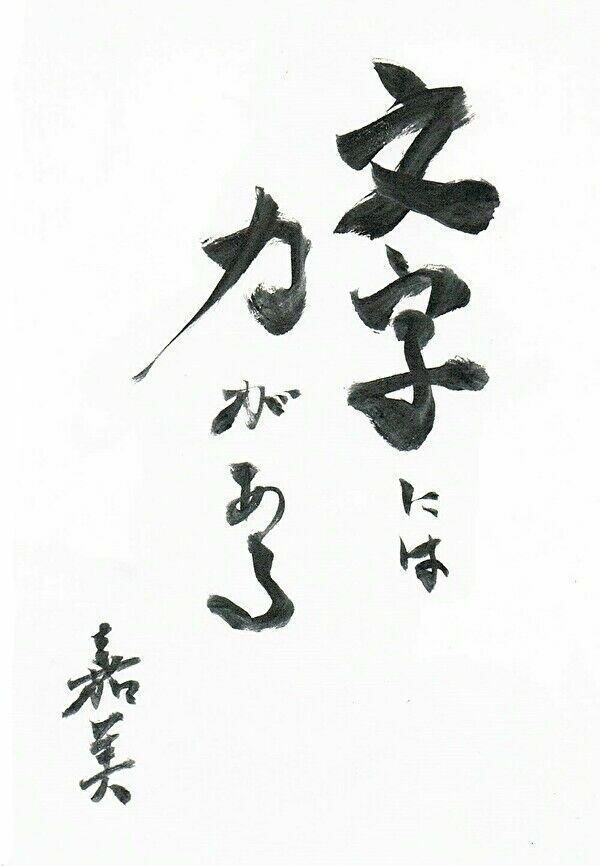 文字には
力がある
嘉美